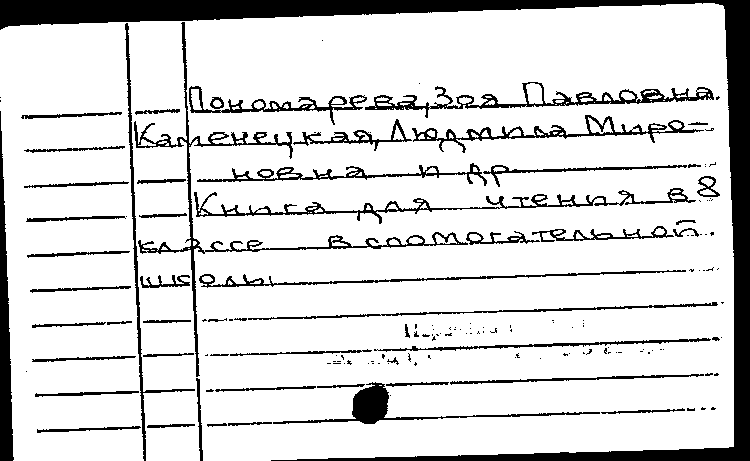 Пономарева, Зоя Павловна
Каменецкая, Людмила Миро-
новна и др
Книга для чтения в 8
классе вспомогательной
школы